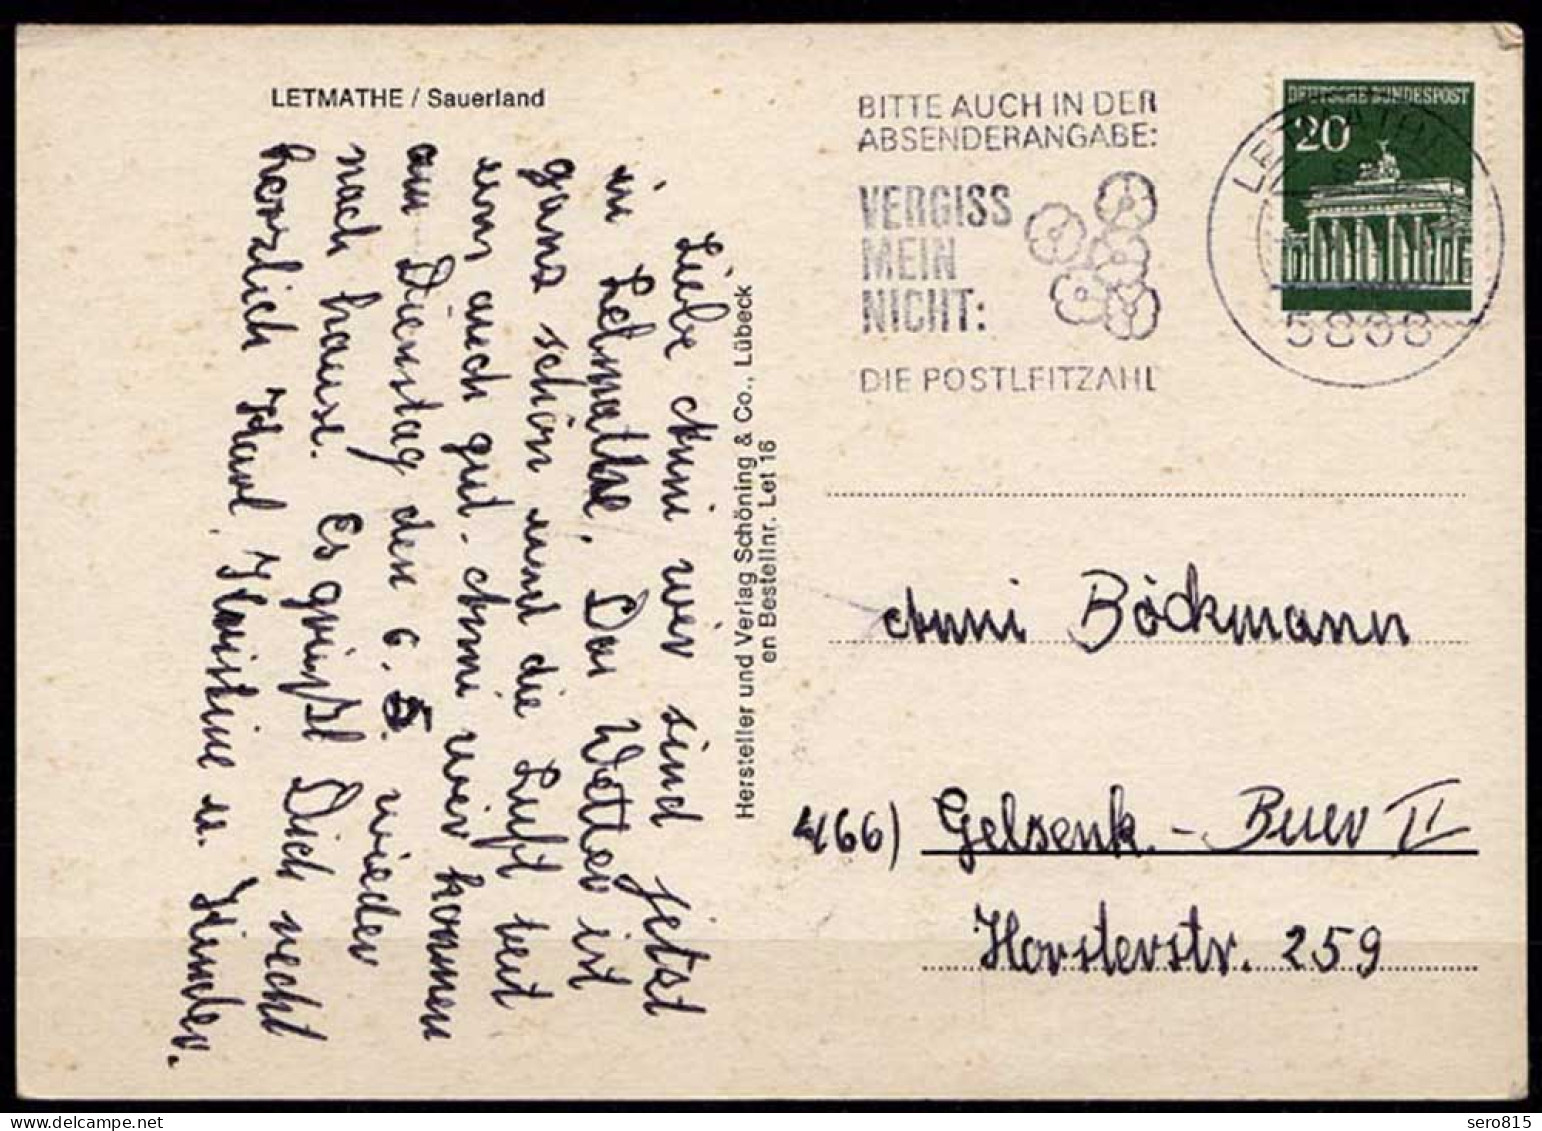 LETMATHE / Sauerland
Liebe Anni wir sind jetzt
in Letmathe. Das Wetter ist
ganz schön und die Luft tut
uns auch gut. Anni wir kommen
am Dienstag den 6. 5. wieder
nach hause. Es grüßt Dich recht
herzlich Karl, Kristine u. Kinder.
Hersteller und Verlag Schöning & Co., Lübeck
en Bestellnr. Let 16
BITTE AUCH IN DER
ABSENDERANGABE:
VERGISS
MEIN
NICHT:
DIE POSTLEITZAHL
DEUTSCHE BUNDESPOST
20
LETMATHE
Anni Böckmann
466) Gelsenk. - Buer II
Horsterstr. 259
sero815